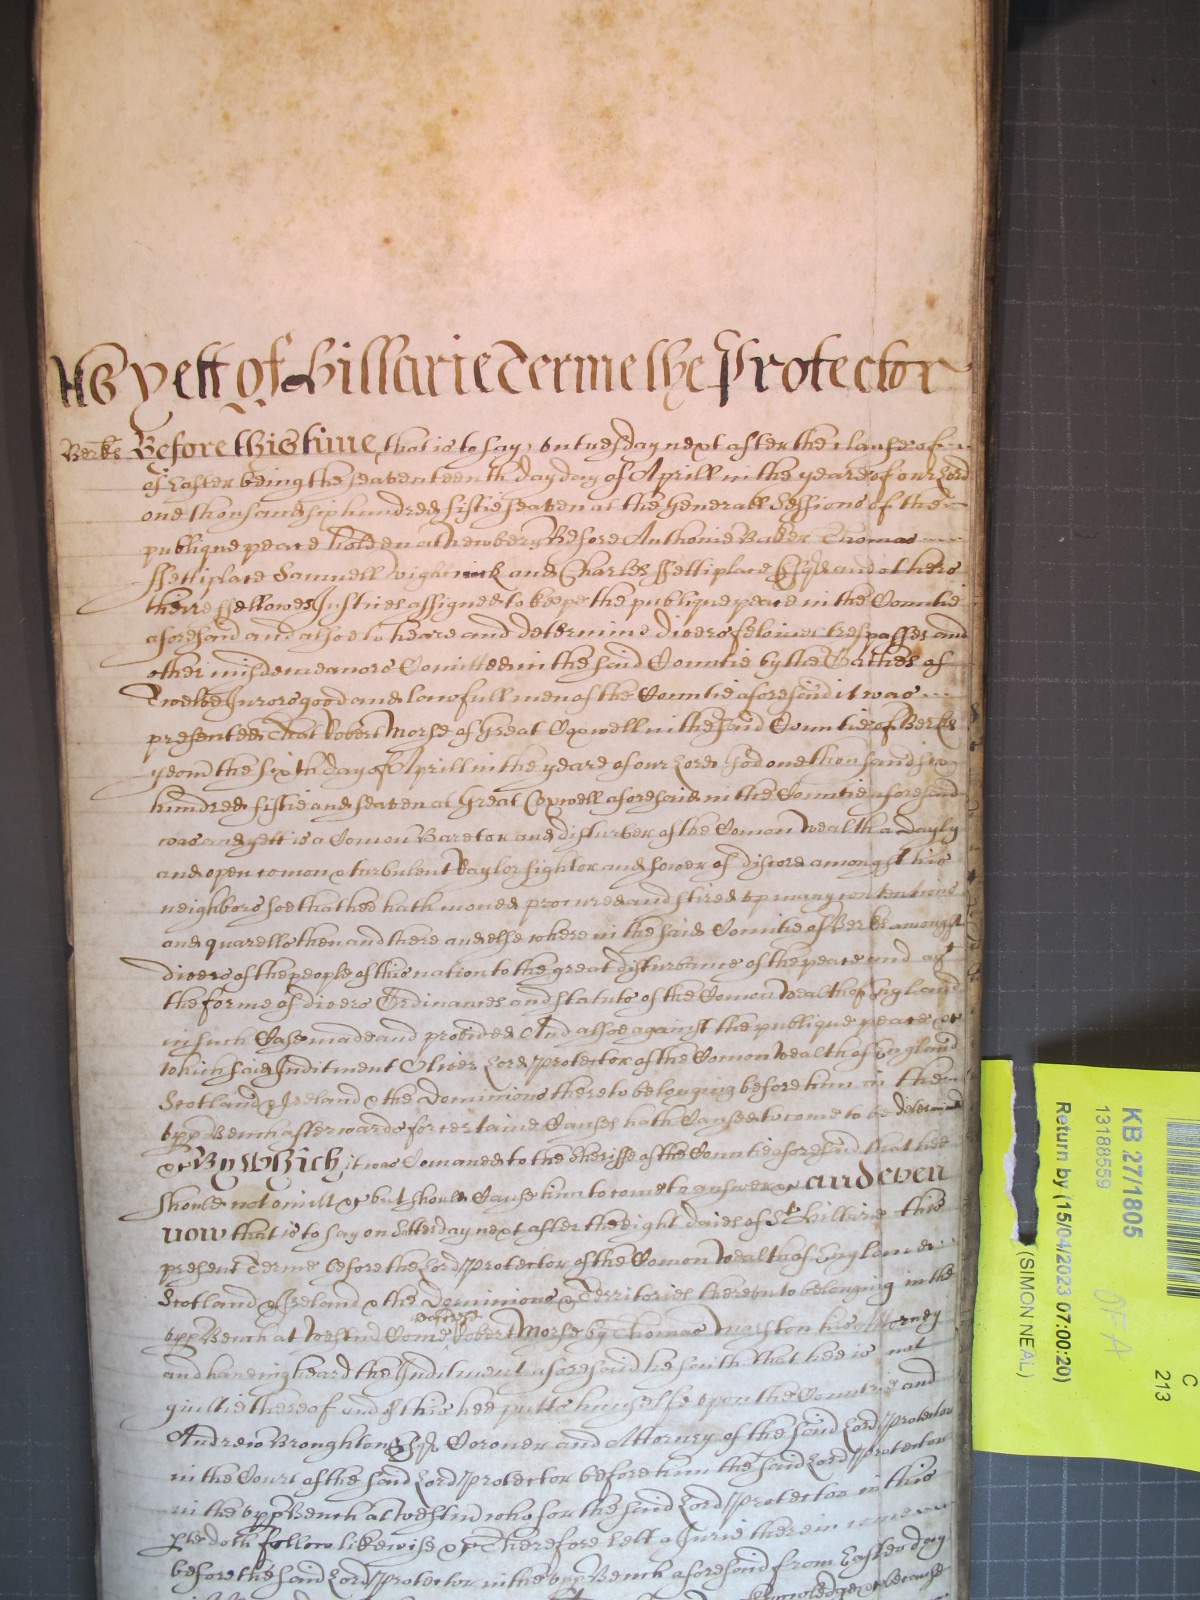 As yett of Hillarie Terme The Protector
Berks Before this time that is to say, on tuesday next after the clause of
of Easter being the seaventeenth day day of Aprill in the yeare of our Lord
one thousand six hundred fiftie seaven at the Generall Sessions of the
publique peace holden at Newbery Before Anthonie Baker Thomas
ffettiplace Samuell Wightwick and Charles ffettiplace Esqrs and others
theire ffellowes Justices assigned to keepe the publique peace in the Countie
aforesaid and alsoe to heare and determine divers felonies trespasses and
other misdemeanors Comitted in the said Countie by the Oathes of
Twelve Jurors good and lawfull men of the Countie aforesaid it was
presented That Robert Morse of Great Coxwell in the said Countie of Berks
yeom the sixth day of Aprill in the yeare of our Lord God one thousand six
hundred fiftie and seaven at Great Coxwell aforesaid in the Countie aforesaid
was and yett is a Comon Baretor and disturber of the Comon Wealth a dayly
and open comon & turbulent Raylor fightor and sower of discord amongst his
neighbors soe that hee hath moved procured and stired up many contentions
and quarells then and there and else where in the said Countie of Berks amongst
divers of the people of this nation to the great disturbance of the peace and agt
the forme of divers Ordinances and statuts of the Comon Wealth of England
in such Case made and provided And alsoe against the publique peace &c
which said Inditment Oliver Lord Protector of the Comon Wealth of England
Scotland & Ireland & the Dominions thereto belonging before him in the
upp Bench afterwards for certaine Causes hath Caused to come to be determined
&c By Which it was Comanded to the Sheriffe of the Countie aforesaid that hee
should not omitt &c but should Cause him to come to answer &c and even
now that is to say on Satterday next after the eight daies of St Hillarie this
present Terme before the Lord Protector of the Comon Wealth of England
Scotland & Ireland & the Dominions & Territories thereunto belonging in the
upp Bench at Westmd Come Robert Morse by Thomas Marston his Attorney
and haveing heard the Inditment aforesaid he saith that hee is not
guiltie thereof and of this hee putts himselfe upon the Countrie and
Andrew Broughton Esqr Coroner and Attorney of the said Lord Protector
in the Court of the said Lord Protector before him the said Lord Protector
in the upp Bench at westmd who for the said Lord Protector in this
pte doth follow likewise &c Therefore lett a Jurie therein come
before the said Lord Protector in the upp Bench aforesaid from Easter day
knowledge &c because
KB 27/1805
13188559
Return by (15/04/2023 07:00:20)
(SIMON NEAL)
C
213